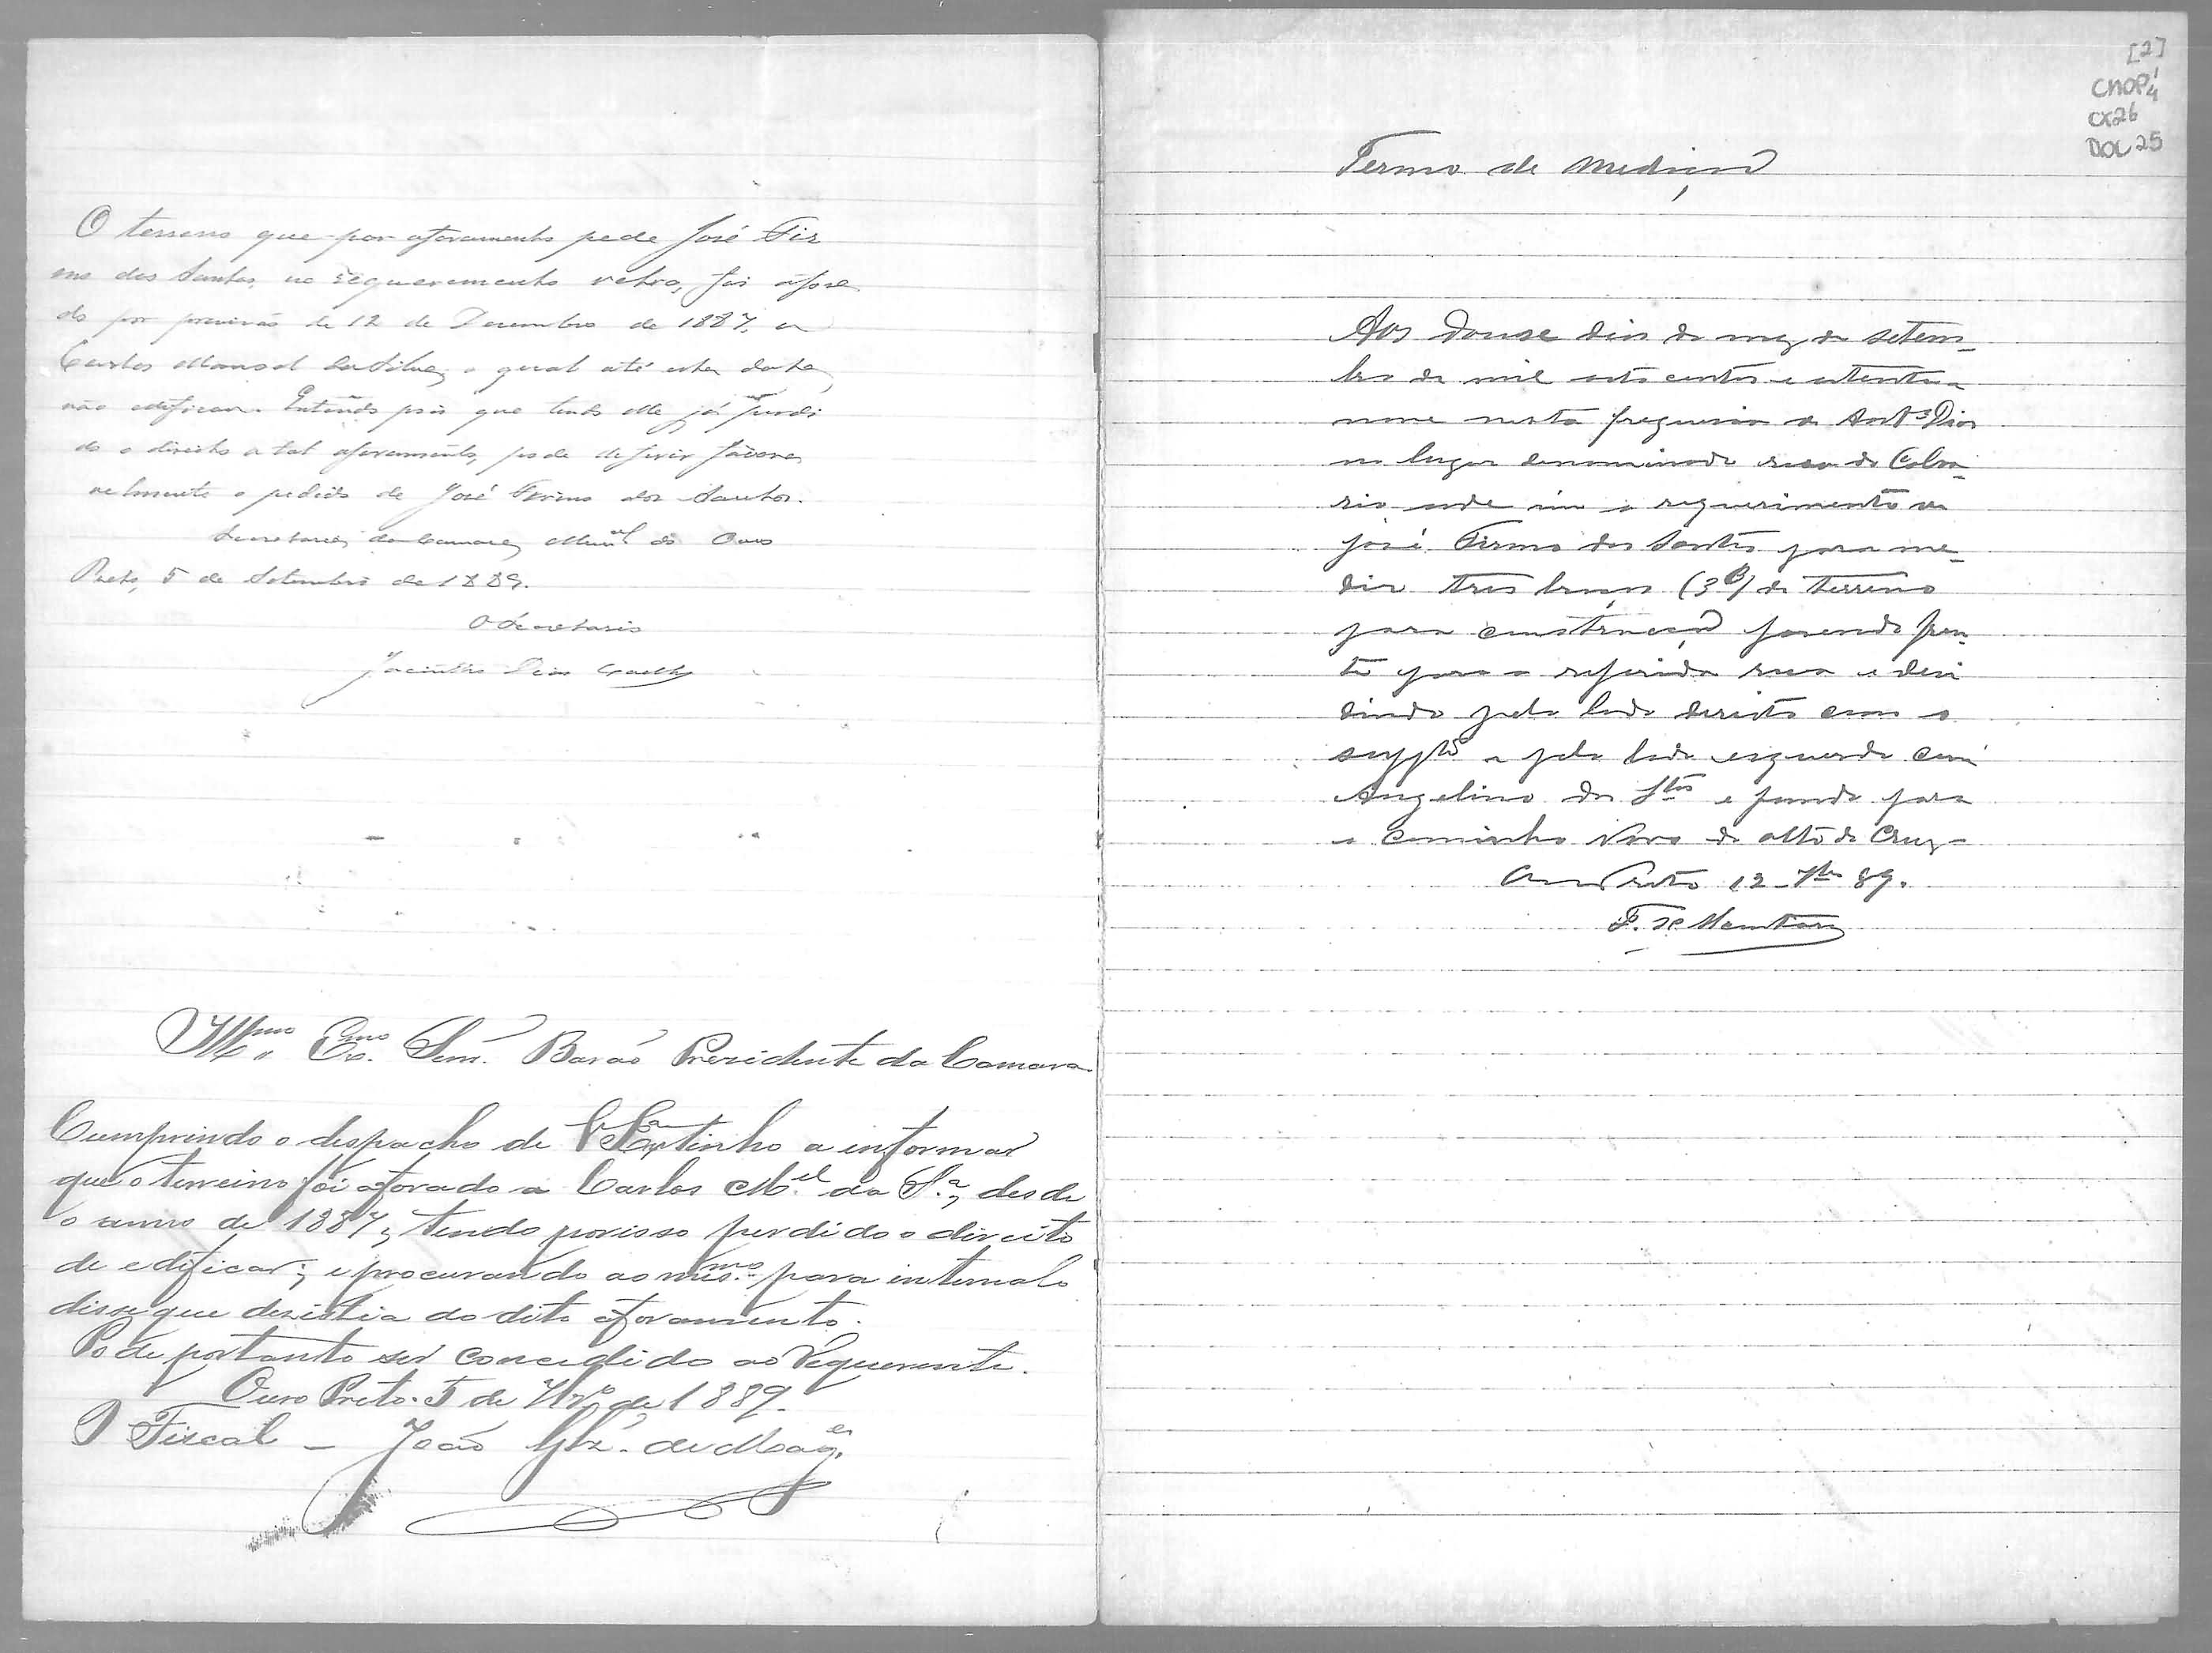 O terreno que por aforamento pede José Fir
mo dos Santos, no requerimento retro, foi afora
do por provisão de 12 de Dezembro de 1887, a
Carlos Manoel da Silva, o qual até esta data,
não edificou. Entendo pois que tendo elle já perdi
do o direito a tal aforamento, pode deferir favora
velmente o pedido de José Firmo dos Santos.
Secretaria da Camara Munal do Ouro
Preto, 5 de Setembro de 1889.
O Secretario
Jacintho Dias Coelho
Illmo Exmo Senr. Barão Presidente da Camara.
Cumprindo o despacho de V Exa tinho a informar
que o terreino foi aforado a Carlos Mel da Sa, desde
o anno de 1887, tendo porisso perdido o direito
de edificar; e procurando ao mesmo para intimalo
disse que dezistia do dito aforamento.
Pode portanto ser concedido ao Requerente.
Ouro Preto. 5 de 7bro de 1889.
O Fiscal - João Glz. de Mages
[2]
CMOP
CX26
DOC 25
Termo de Medição
Aos douse dias do mez de setem-
bro de mil oito centos e oitenta e
nove nesta freguesia de Antº Dias
no lugar denominado rua do Calva-
rio onde vim a requerimento de
José Firmo dos Santos para me-
dir tres braças (3B) de terreno
para construcção fasendo fren-
te para a referida rua e divi
dindo pelo lado direito com o
suppte e pelo lado esquerdo com
Angelino dos Stos e fundo para
o Caminho Novo do alto da Cruz
Ouro Preto 12 7bro 89.